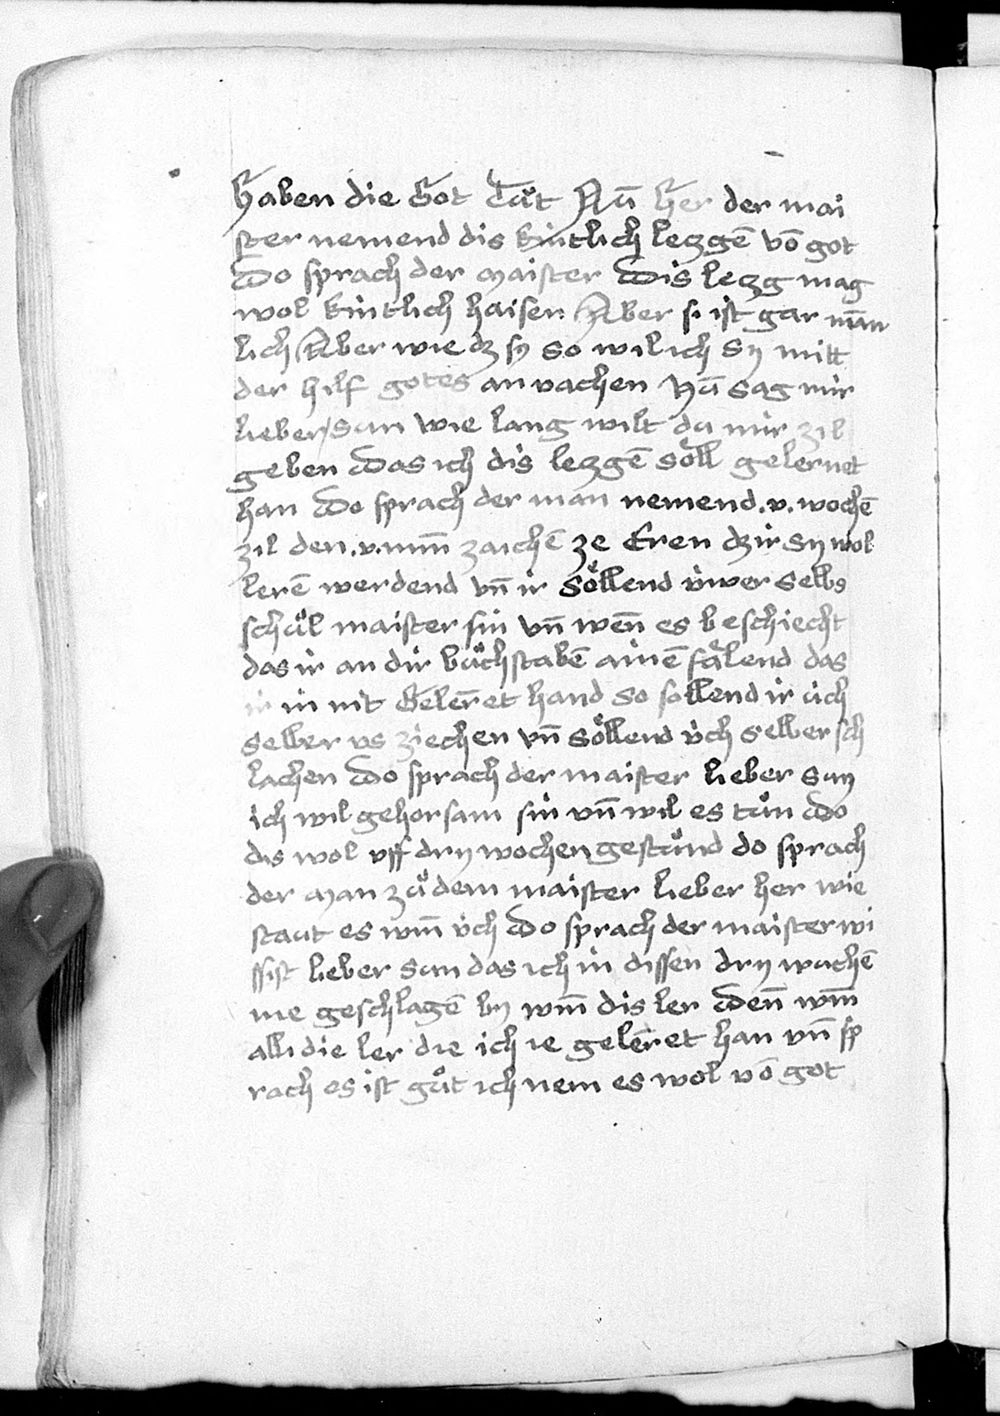 Haben die Got tuͦt Nū her der mai
ster nemend dis kintlich leczgē vō got
Do sprach der maister Dis leczg mag
wol kintlich haisen Aber si ist gar man
lich Aber wie dz sy so wil ich sy mitt
der hilf gotes an vachen Nū sag mir
lieber sun wie lang wilt du mir zil
geben Das ich dis leczgē söll gelernet
han Do sprach der man nemend .v. wochē
zil den .v. zaichē ze Eren dz ir sy wol
lerē werdend vn̄ ir söllend v̈wer selbs
schuͦl maister sin vn̄ wen̄ es beschiecht
das ir an dir buͦchstabē ainē fälend das
ir in nit Geler̄et hand so söllend ir u̇ch
selber vs ziechen vn̄ söllend v̇ch selber sch
lachen Do sprach der maister lieber sun
ich wil gehorsam sin vn̄ wil es tuͦn Do
dis wol vff dry wochen gestuͦnd do sprach
der man zuͦ dem maister lieber her wie
staut es vm̄ v̇ch Do sprach der maister wi
ssist lieber sun das ich in dissen dry wuchē
me geschlagē by vm̄ dis ler Den̄ vm̄
alli die ler die ich ie geler̄et han vn̄ sp
rach es ist guͦt ich nem es wol vō got